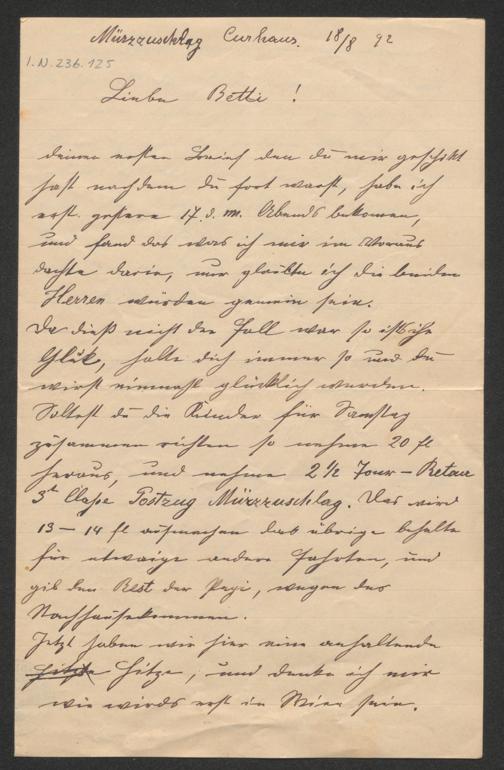 Mürzzuschlag Curhaus. 18/8 92
I.N. 236.125
Liebe Betti !
deinen ersten Brief den du mir geschikt
hast nachdem du fort warst, habe ich
erst gestern 17. d. M. Abends bekomen,
und fand das was ich mir im Voraus
dachte darin, nur glaubte ich die beiden
Herren würden gemein sein.
Da dieß nicht der Fall war so ist's ihr
Glük, halte dich immer so und du
wirst einmahl glücklich werden.
Soltest du die Kinder für Samstag
zusammen richten so nehme 20 fl
heraus, und nehme 2 1/2 Tour-Retour
3te Classe Postzug Mürzzuschlag. Das wird
13 – 14 fl ausmachen das übrige behalte
für etwaige andere Fahrten, und
gib den Rest der Pepi, wegen des
Nachhausekommen.
Jetzt haben wir hier eine anhaltende
Hitze, und denke ich mir
wie wirds erst in Wien sein.